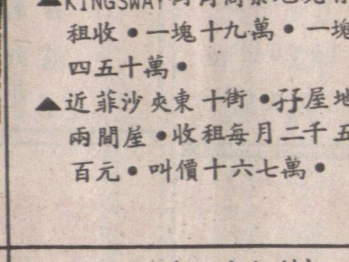 ▲KINGSWAY
租收●一塊十九萬●一塊
四五十萬●
▲近菲沙夾東十街●孖屋地
兩間屋●收租每月二千五
百元●叫價十六七萬●